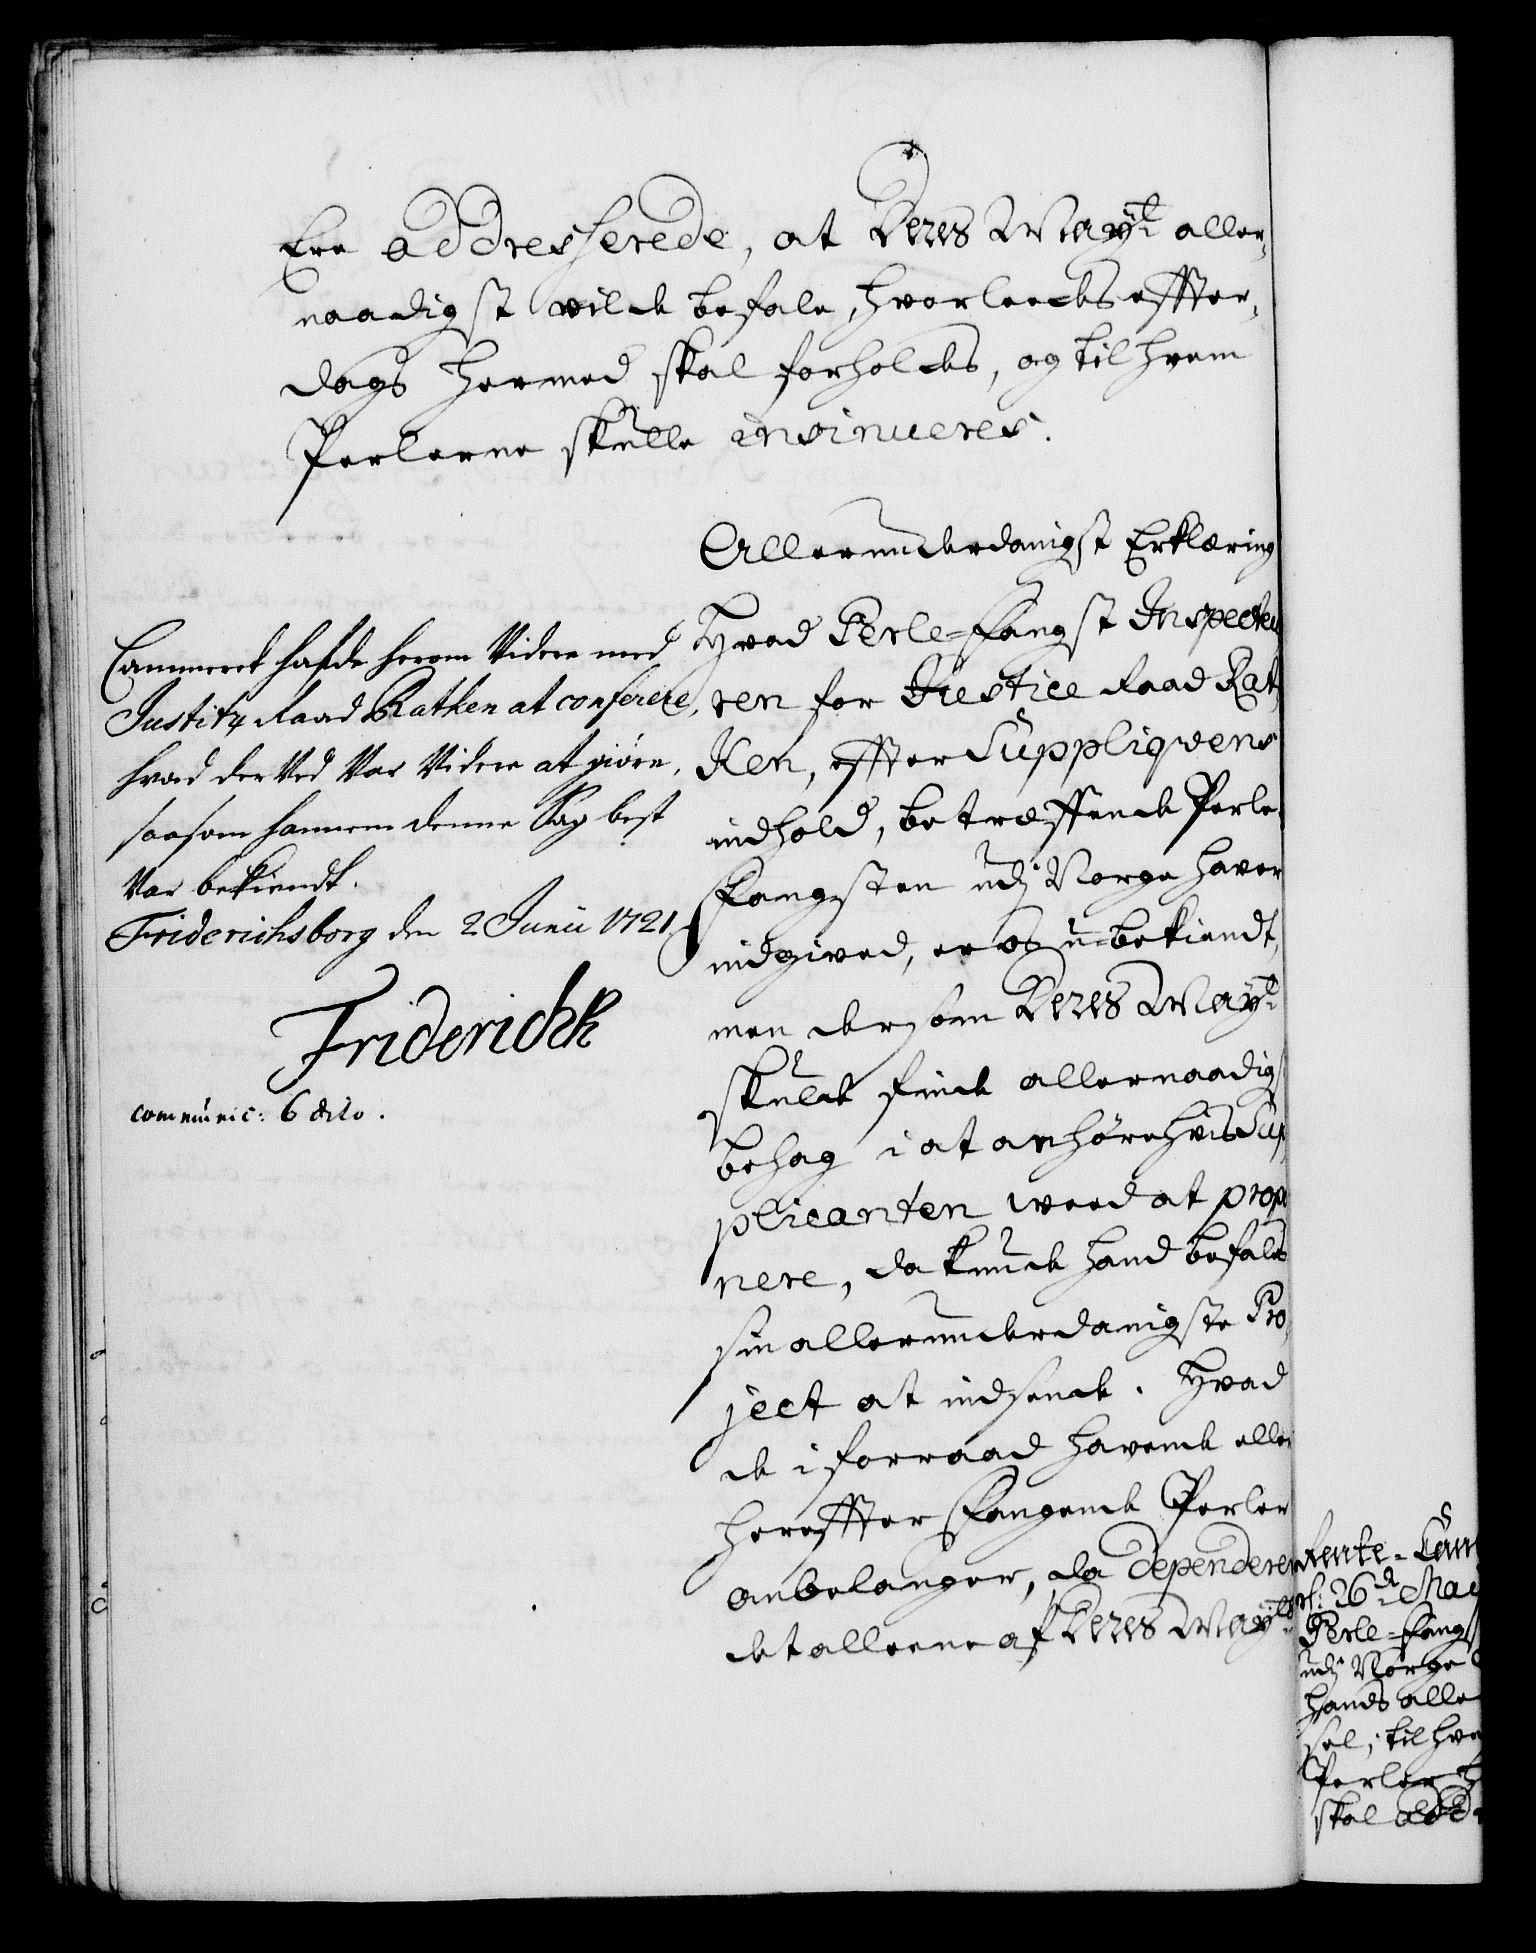 Ere addresserede, at Deres Mayt aller,
naadigst vilde befale, hvorleedes effter,
dags hermed skal forholdes, og til hvem
Perlerne skulle insinueres.
Allerunderdanigst Erklæring
Hvad Perle-Fangst Inspecteu
ren for Justice Raad Rat,
Ken, effter Suppliqvens
indhold, betreffende Perle
Fangsten udj Norge haver
indgived, er os ubekiendt,
men dersom Deres Mayt
skulde finde allernaadigs
behag i at anhøre hvis Sup
plicanten weed at propo
nere, da kunde hand befales
sin allerunderdanigste Pro,
ject at indsende. Hvad
de i forraad havende eller
hereffter Fangende Perler
anbelanger, da dependerer
det alleene af Deres Mayts
Cammeret hafde herom Videre med
Justitz Raad Rathken at conferere,
hvad der Ved Var Videre at giöre,
saasom hannem denne Sag best
Var bekiendt.
Friderichsborg den 2 Junii 1721.
Friderich R
communic: 6 dito.
Rente-Cam
26 d May
Perle-Fangs
udj Norge
hands alle
sel, til hve
Perler
skal add